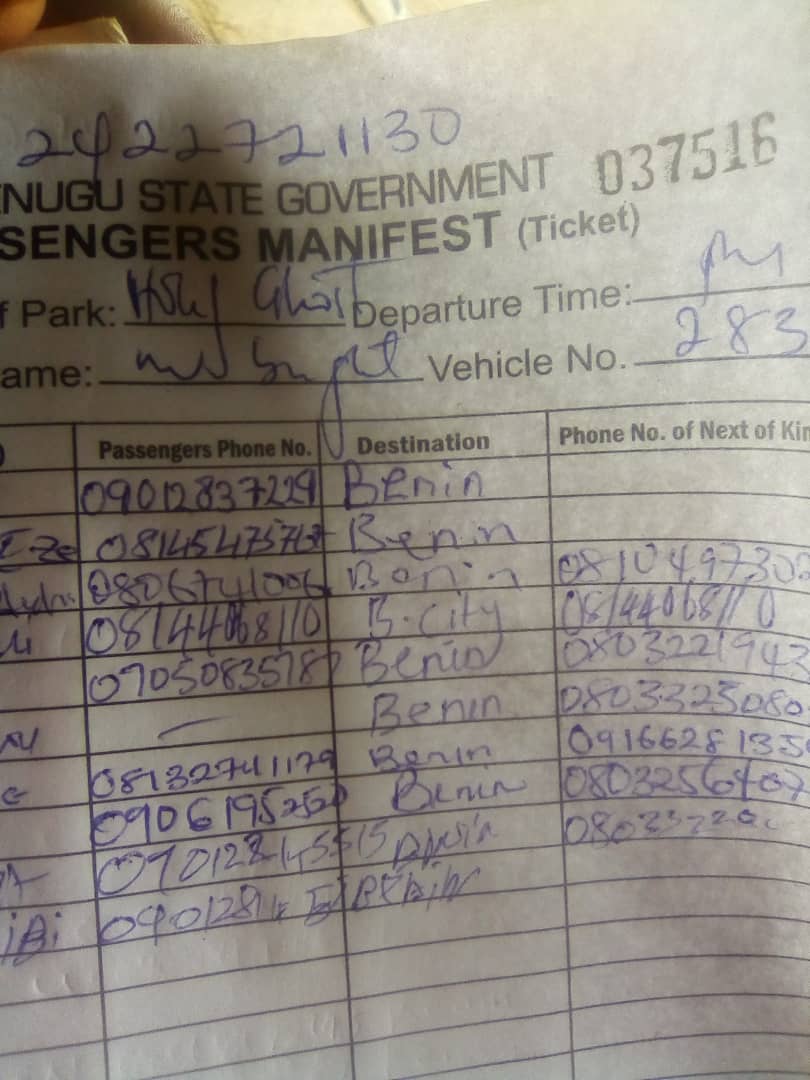 2422721130
ENUGU STATE GOVERNMENT 037516
SENGERS MANIFEST (Ticket)
f Park: Holy Ghost Departure Time: pm
ame: Vehicle No. 283
Passengers Phone No. Destination Phone No. of Next of Kin
09012837229 Benin
Eze 0814547576 Benin
0806741006 Benin 0810497307
08144068110 B.city 08144068110
0705083578 Benin 0803221943
Benin 0803325080
08132741179 Benin 09166281335
090619525 Benin 080325640
Benin 08033220
iBi Benin